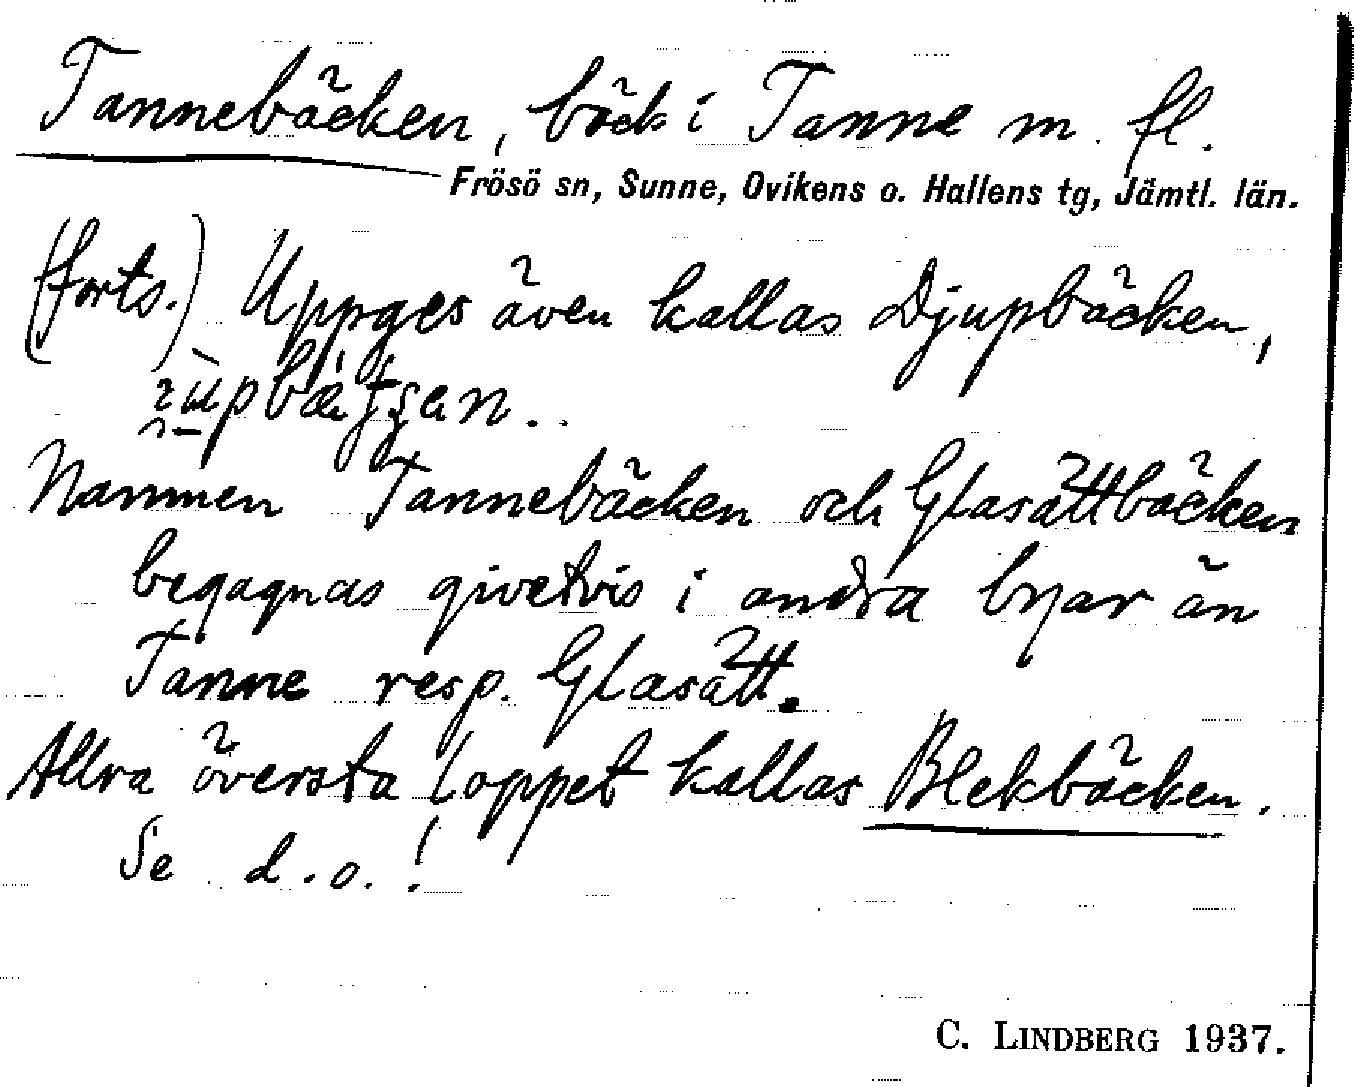 Tannebäcken, bäck i Tanne m. fl.
Frösö sn, Sunne, Ovikens o. Hallens tg, Jämtl. län.
(forts.) Uppges även kallas Djupbäcken,
Namnen Tannebäcken och Glasättbäcken
begagnas givetvis i andra byar än
Tanne resp. Glasätt.
Allra översta loppet kallas Blekbäcken.
Se d.o.!
C. LINDBERG 1937.